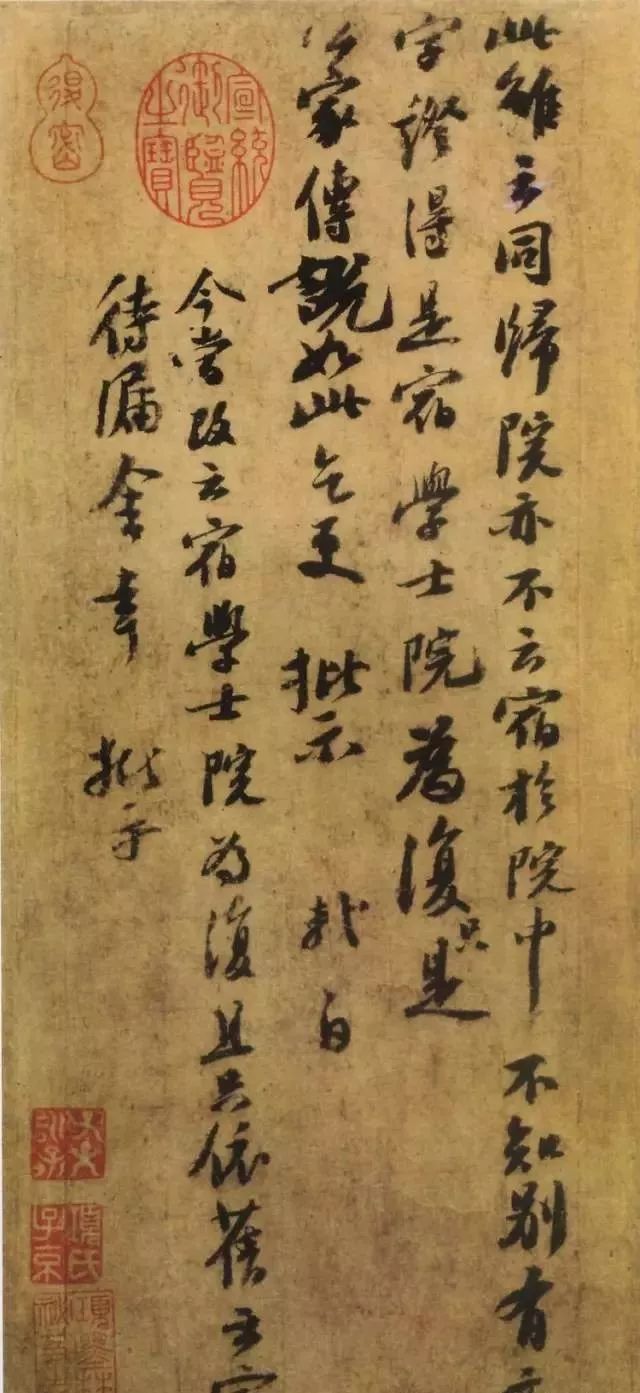 此雖云同歸院亦不云宿於院中 不知別有
字證得是宿學士院為復只是
公家傳說如此乞更 批示 軾白
今當改云宿學士院為復且只依舊云宿
待漏舍幸 批示
宣統御覽之寶
退密
項氏子京